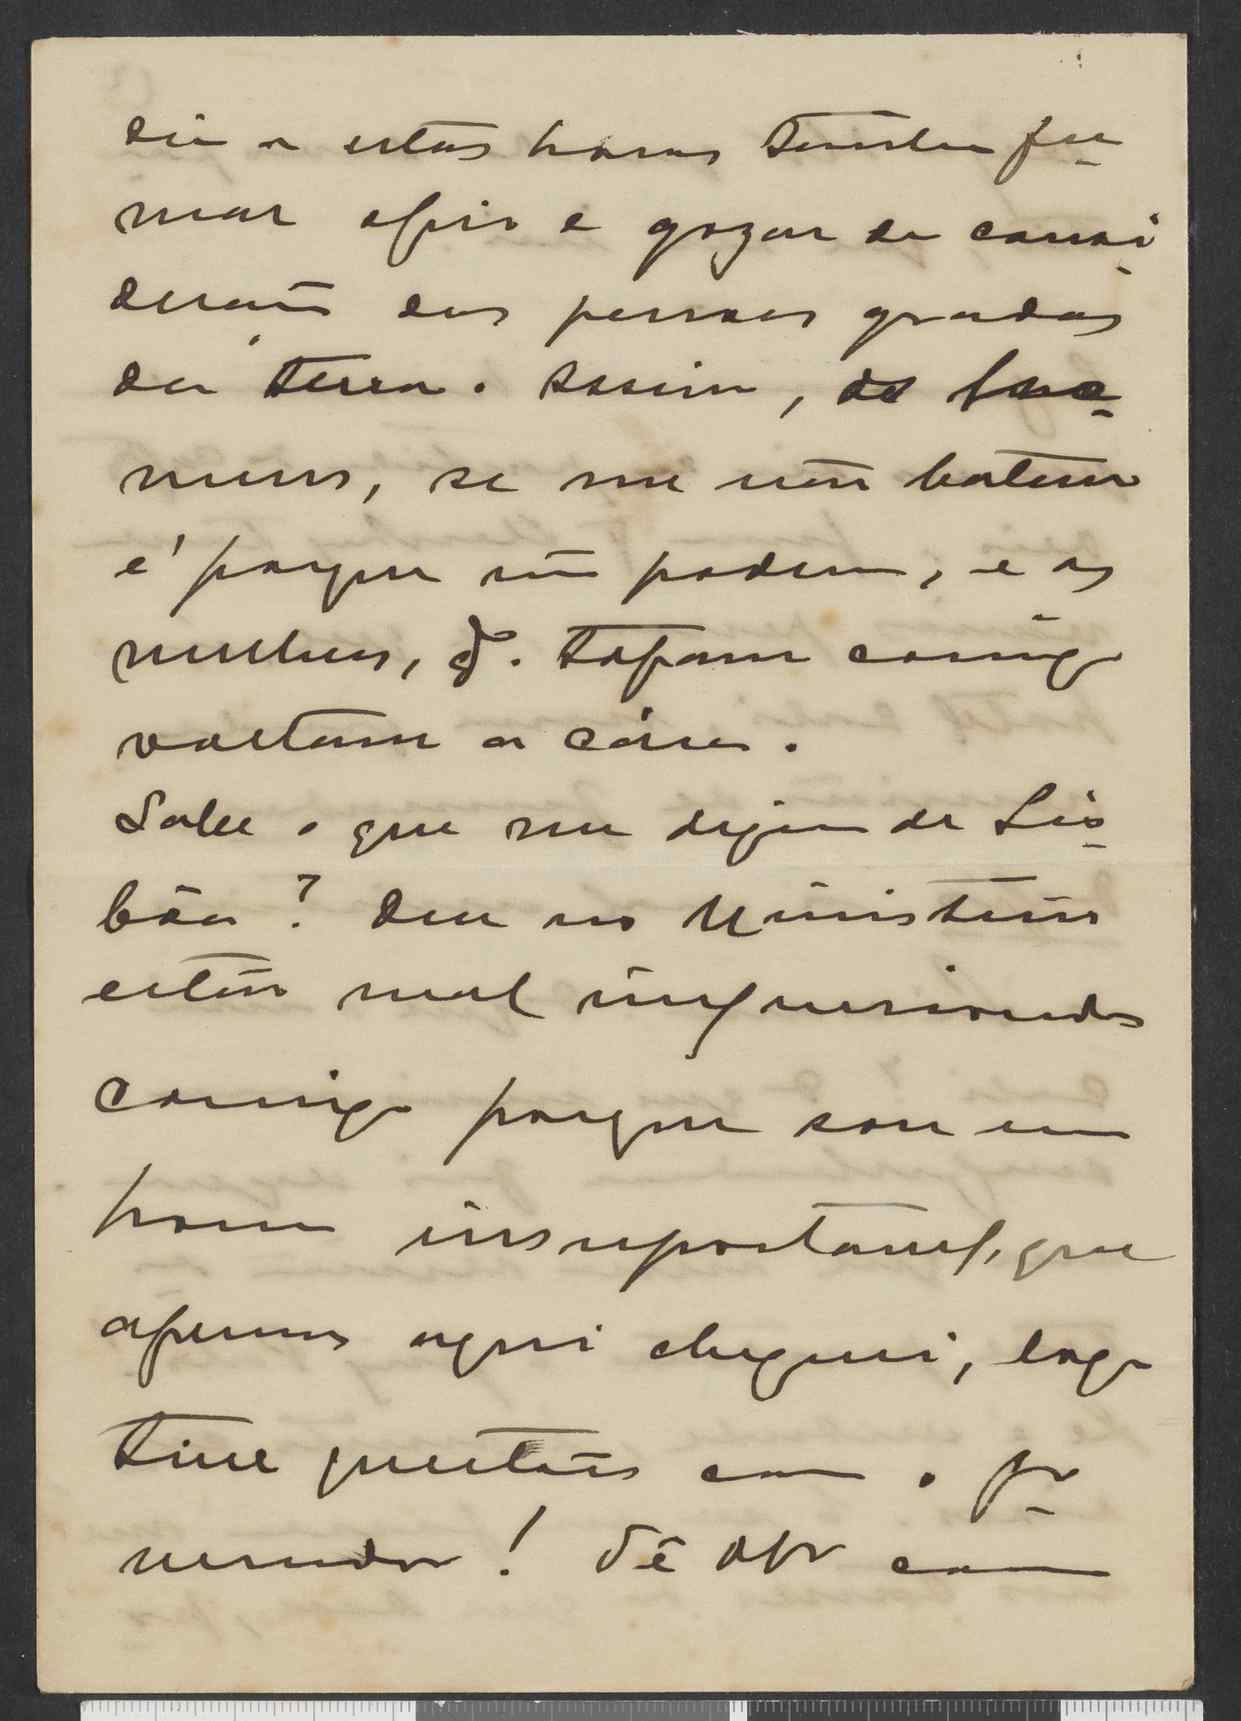 dia a estas horas tenha fu-
mar opio e gozar da consi-
deração das pessoas gradas
da terra. Assim, os ho-
mens, se me não batem
é porque não podem, e as
mulheres, q.do topam comigo
voltam a cára.
Sabe o que me dizem de Lis-
bôa? Que no Ministerio
estão mal impressionados
comigo porque sou um
homem insuportavel, que
apenas aqui cheguei, logo
tive questões com o go-
vernador! Vê se pode com